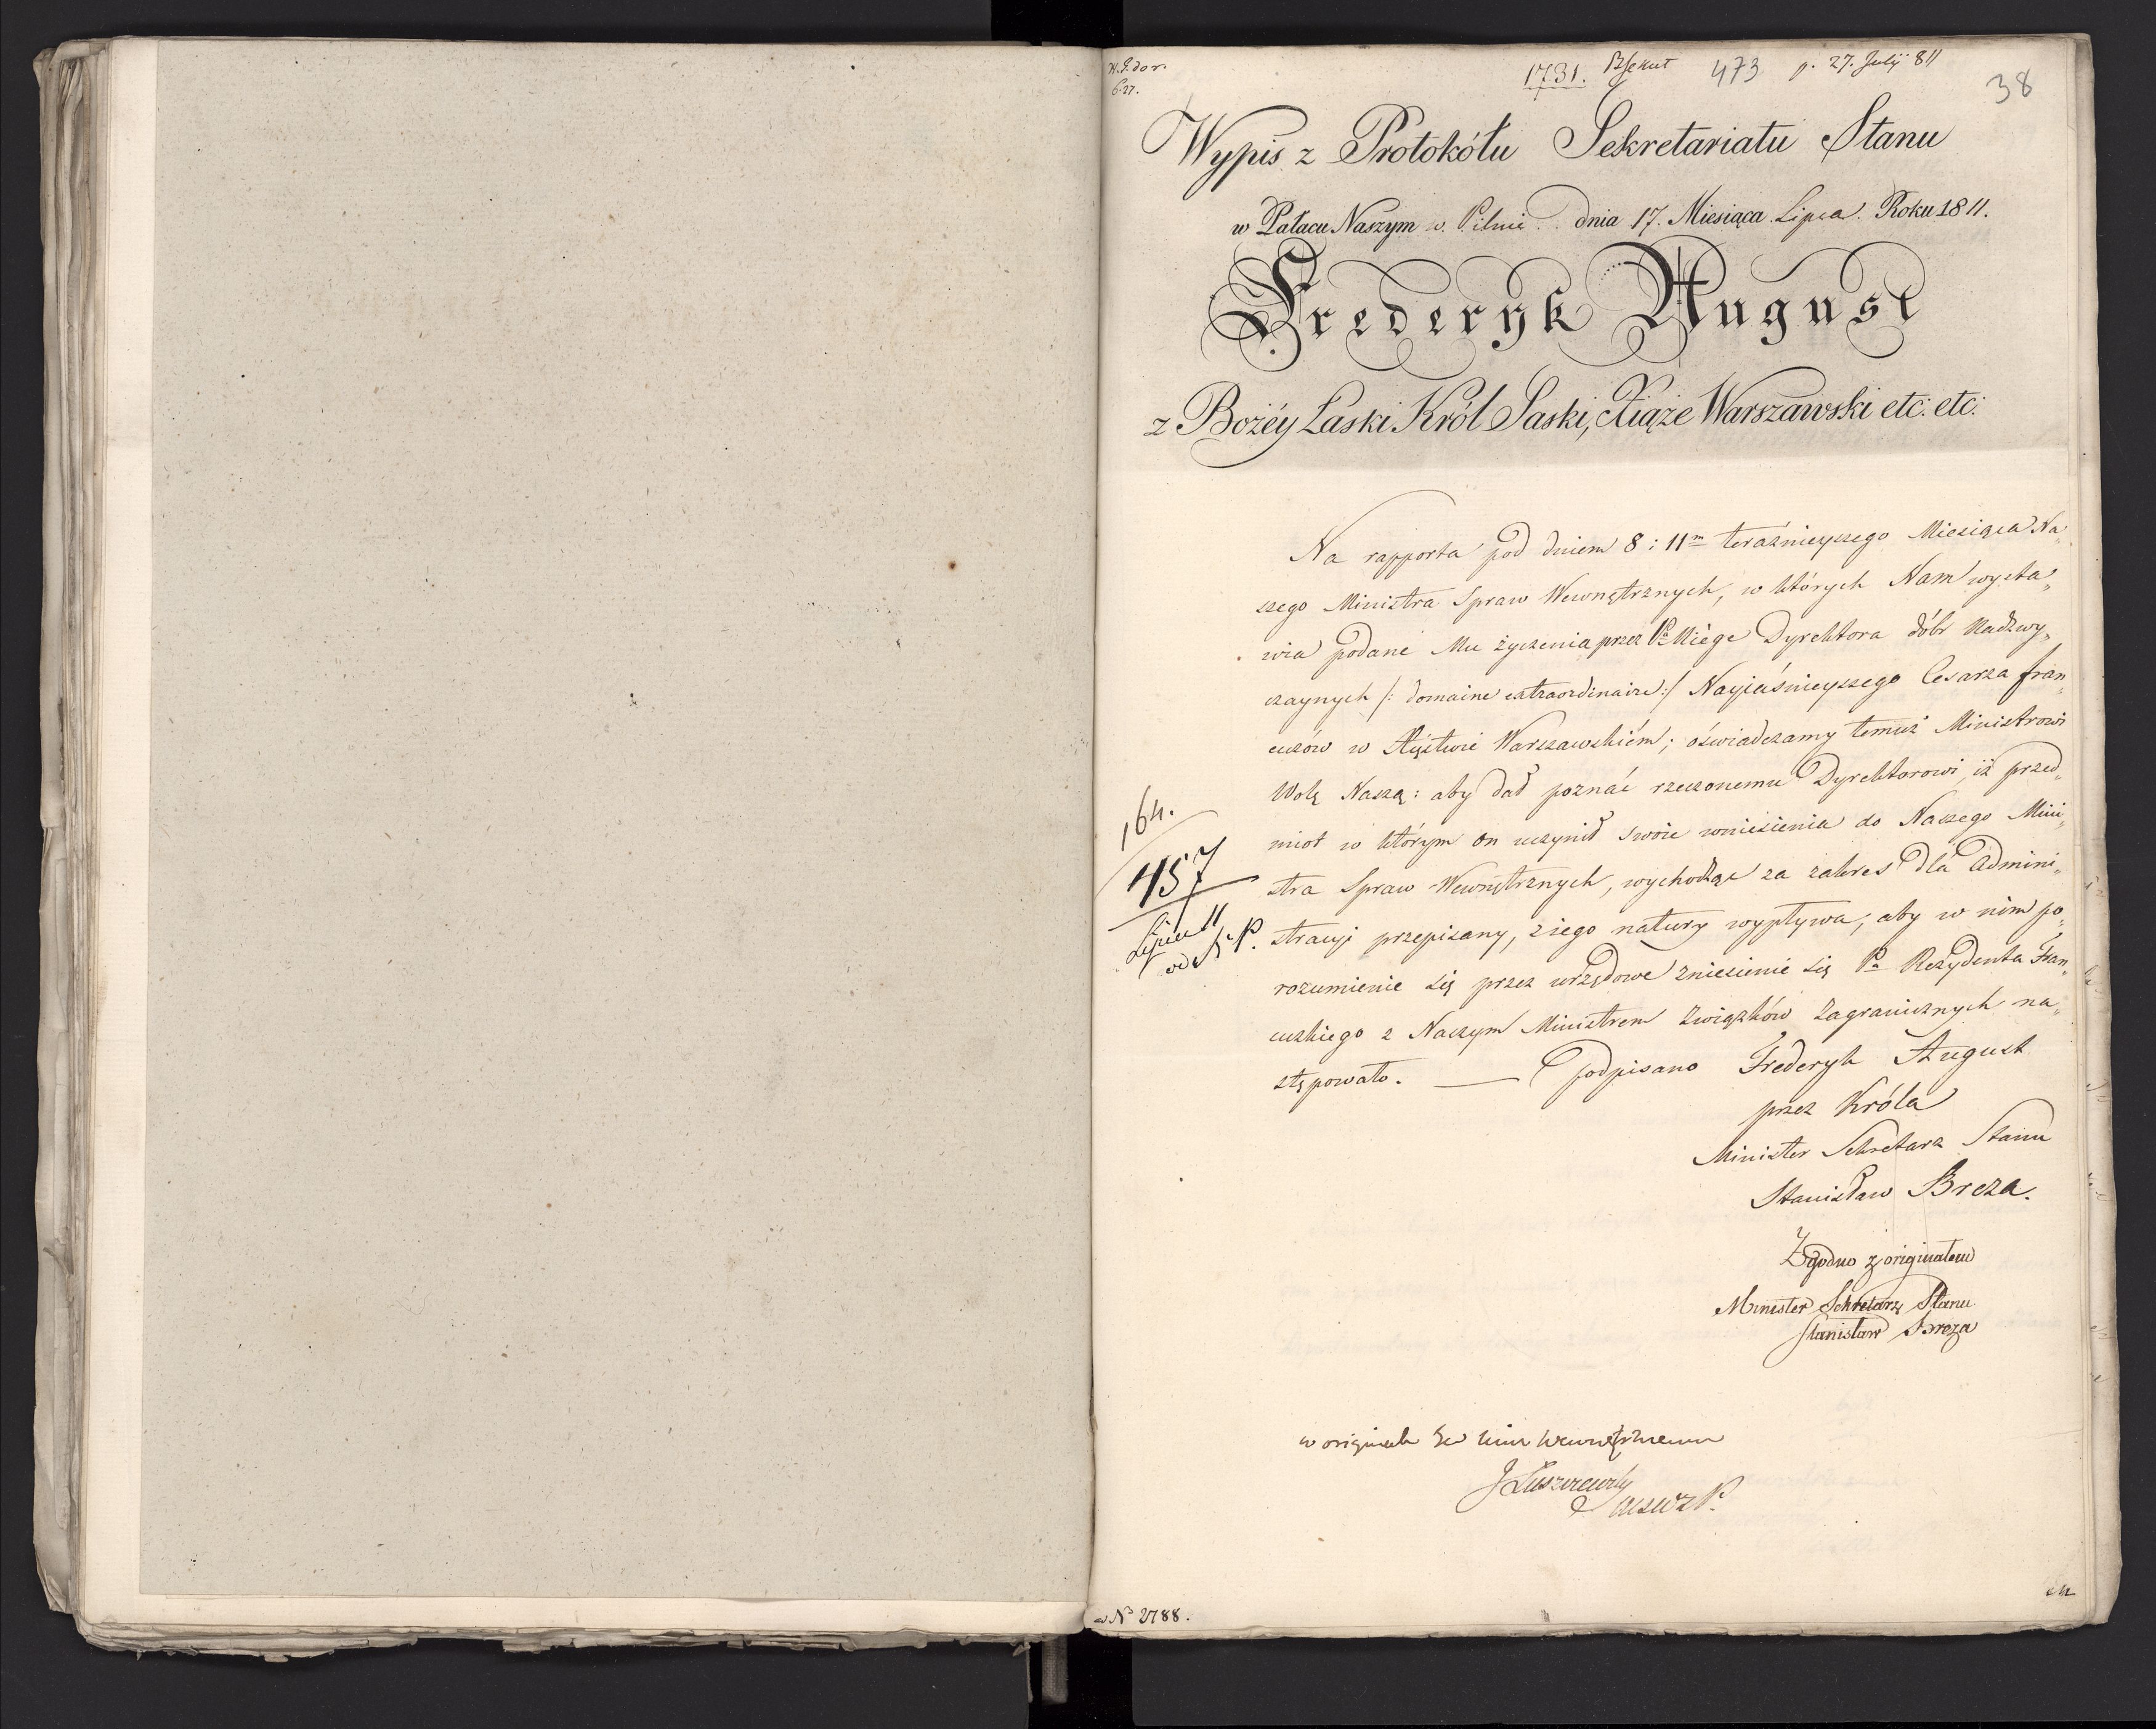 1731. 473 p. 27. Julÿ 811
38
Wypis z Protokółu Sekretariatu Stanu
w Pałacu Naszym w. Pilnie dnia 17. Miesiąca Lipca. Roku 1811.
Frederyk August
z Bożéy Łaski Król Saski, Xiąże Warszawski etc: etc:
Na rapporta pod dniem 8 i 11m teraźnieyszego Miesiąca Na„
szego Ministra Spraw Wewnętrznych, w których Nam wysta„
wia podane Mu życzenia przez Pa Miège Dyrektora dóbr Nadzwy„
czaynych /: domaine extraordinaire :/ Nayjaśnieyszego Cesarza fran„
cuzów w Xięstwie Warszawskiém; oświadczamy temuż Ministrowi
Wolę Naszą: aby dał poznać rzeczonemu Dyrektorowi, iż przed„
miot w którym on uczynił swoie wniesienia do Naszego Mini„
stra Spraw Wewnętrznych, wychodząc za zakres dla Admini„
stracyi przepisany, z iego natury wypływa, aby w nim po„
rozumienie się przez urzędowe zniesienie się Pa Rezydenta Fran„
cuzkiego z Naszym Ministrem Związków Zagranicznych na„
stępowało. — Podpisano Frederyk August
przez Króla
Minister Sekretarz Stanu
Stanisław Breza.
Zgodno z originałem
Minister Sekretarz Stanu
Stanisław Breza
164.
457
Lipca 11
od N. P.
w originale
J Łuszczewsky
w No 2788.